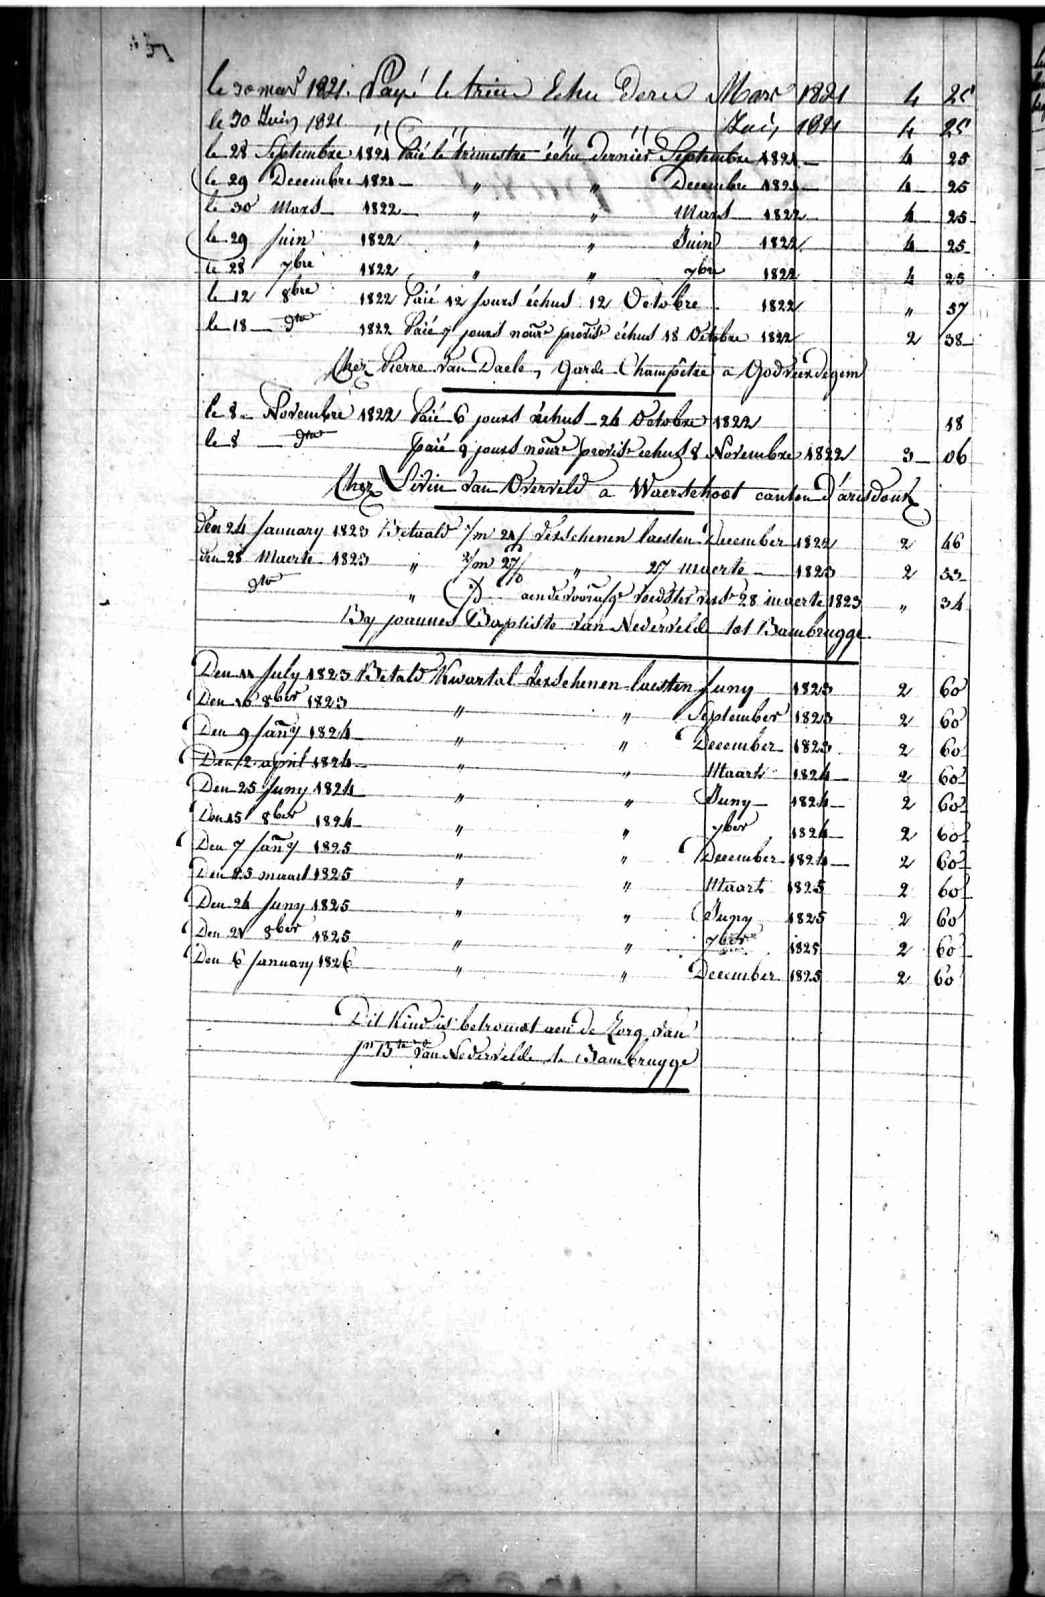 le 30 mars 1821. Payé le trim Echu dern Mars 1821 4 25
le 30 Juin 1821 " " " " Juin 1821 4 25
le 28 Septembre 1821 Paié le trimestre échu dernier Septembre 1821 4 25
le 29 Decembre 1821 " " Decembre 1821 4 25
le 30 Mars 1822 " " Mars 1822 4 25
le 29 Juin 1822 " " Juin 1822 4 25
le 28 7bre 1822 " " 7bre 1822 4 25
le 12 8bre 1822 Paié 12 jours échus 12 Octobre 1822 " 57
le 18 dto 1822 Paié 7 jours nour provis échus 18 Octobre 1822 2 38
Chez Pierre Van Daele, Garde Champêtre a Godveerdegem
le 8 Novembre 1822 Paié 6 jours échus 24 Octobre 1822 18
le 8 dto paié 9 jours nour provis echus 8 Novembre 1822 3 06
Chez Livin Van Overveld a Waerschoot canton
Den 24 January 1823 Betaald verschenen laesten December 1822 2 46
Den 28 Maerte 1823 " 27 " 27 maerte 1823 2 53
dto " voedster 28 maerte 1823 " 34
By joannes Baptiste Van Nederveld tot Bambrugge.
Den 11 July 1823 Betald Kwartal verschenen laesten Juny 1823 2 60
Den 16 8ber 1823 " " September 1823 2 60
Den 9 Jany 1824 " " December 1823 2 60
Den 12 april 1824 " " Maart 1824 2 60
Den 25 Juny 1824 " " Juny 1824 2 60
Den 15 8ber 1824 " " 7ber 1824 2 60
Den 7 Jany 1825 " " December 1824 2 60
Den 23 maart 1825 " " Maart 1825 2 60
Den 24 Juny 1825 " " Juny 1825 2 60
Den 21 8ber 1825 " " 7ber 1825 2 60
Den 6 January 1826 " " December 1825 2 60
Dit Kind is betrouwt aen de Zorg van
Jn Bte Van Nedervelde te Bambrugge